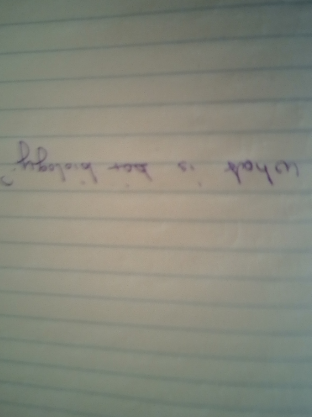 what is bio biology?